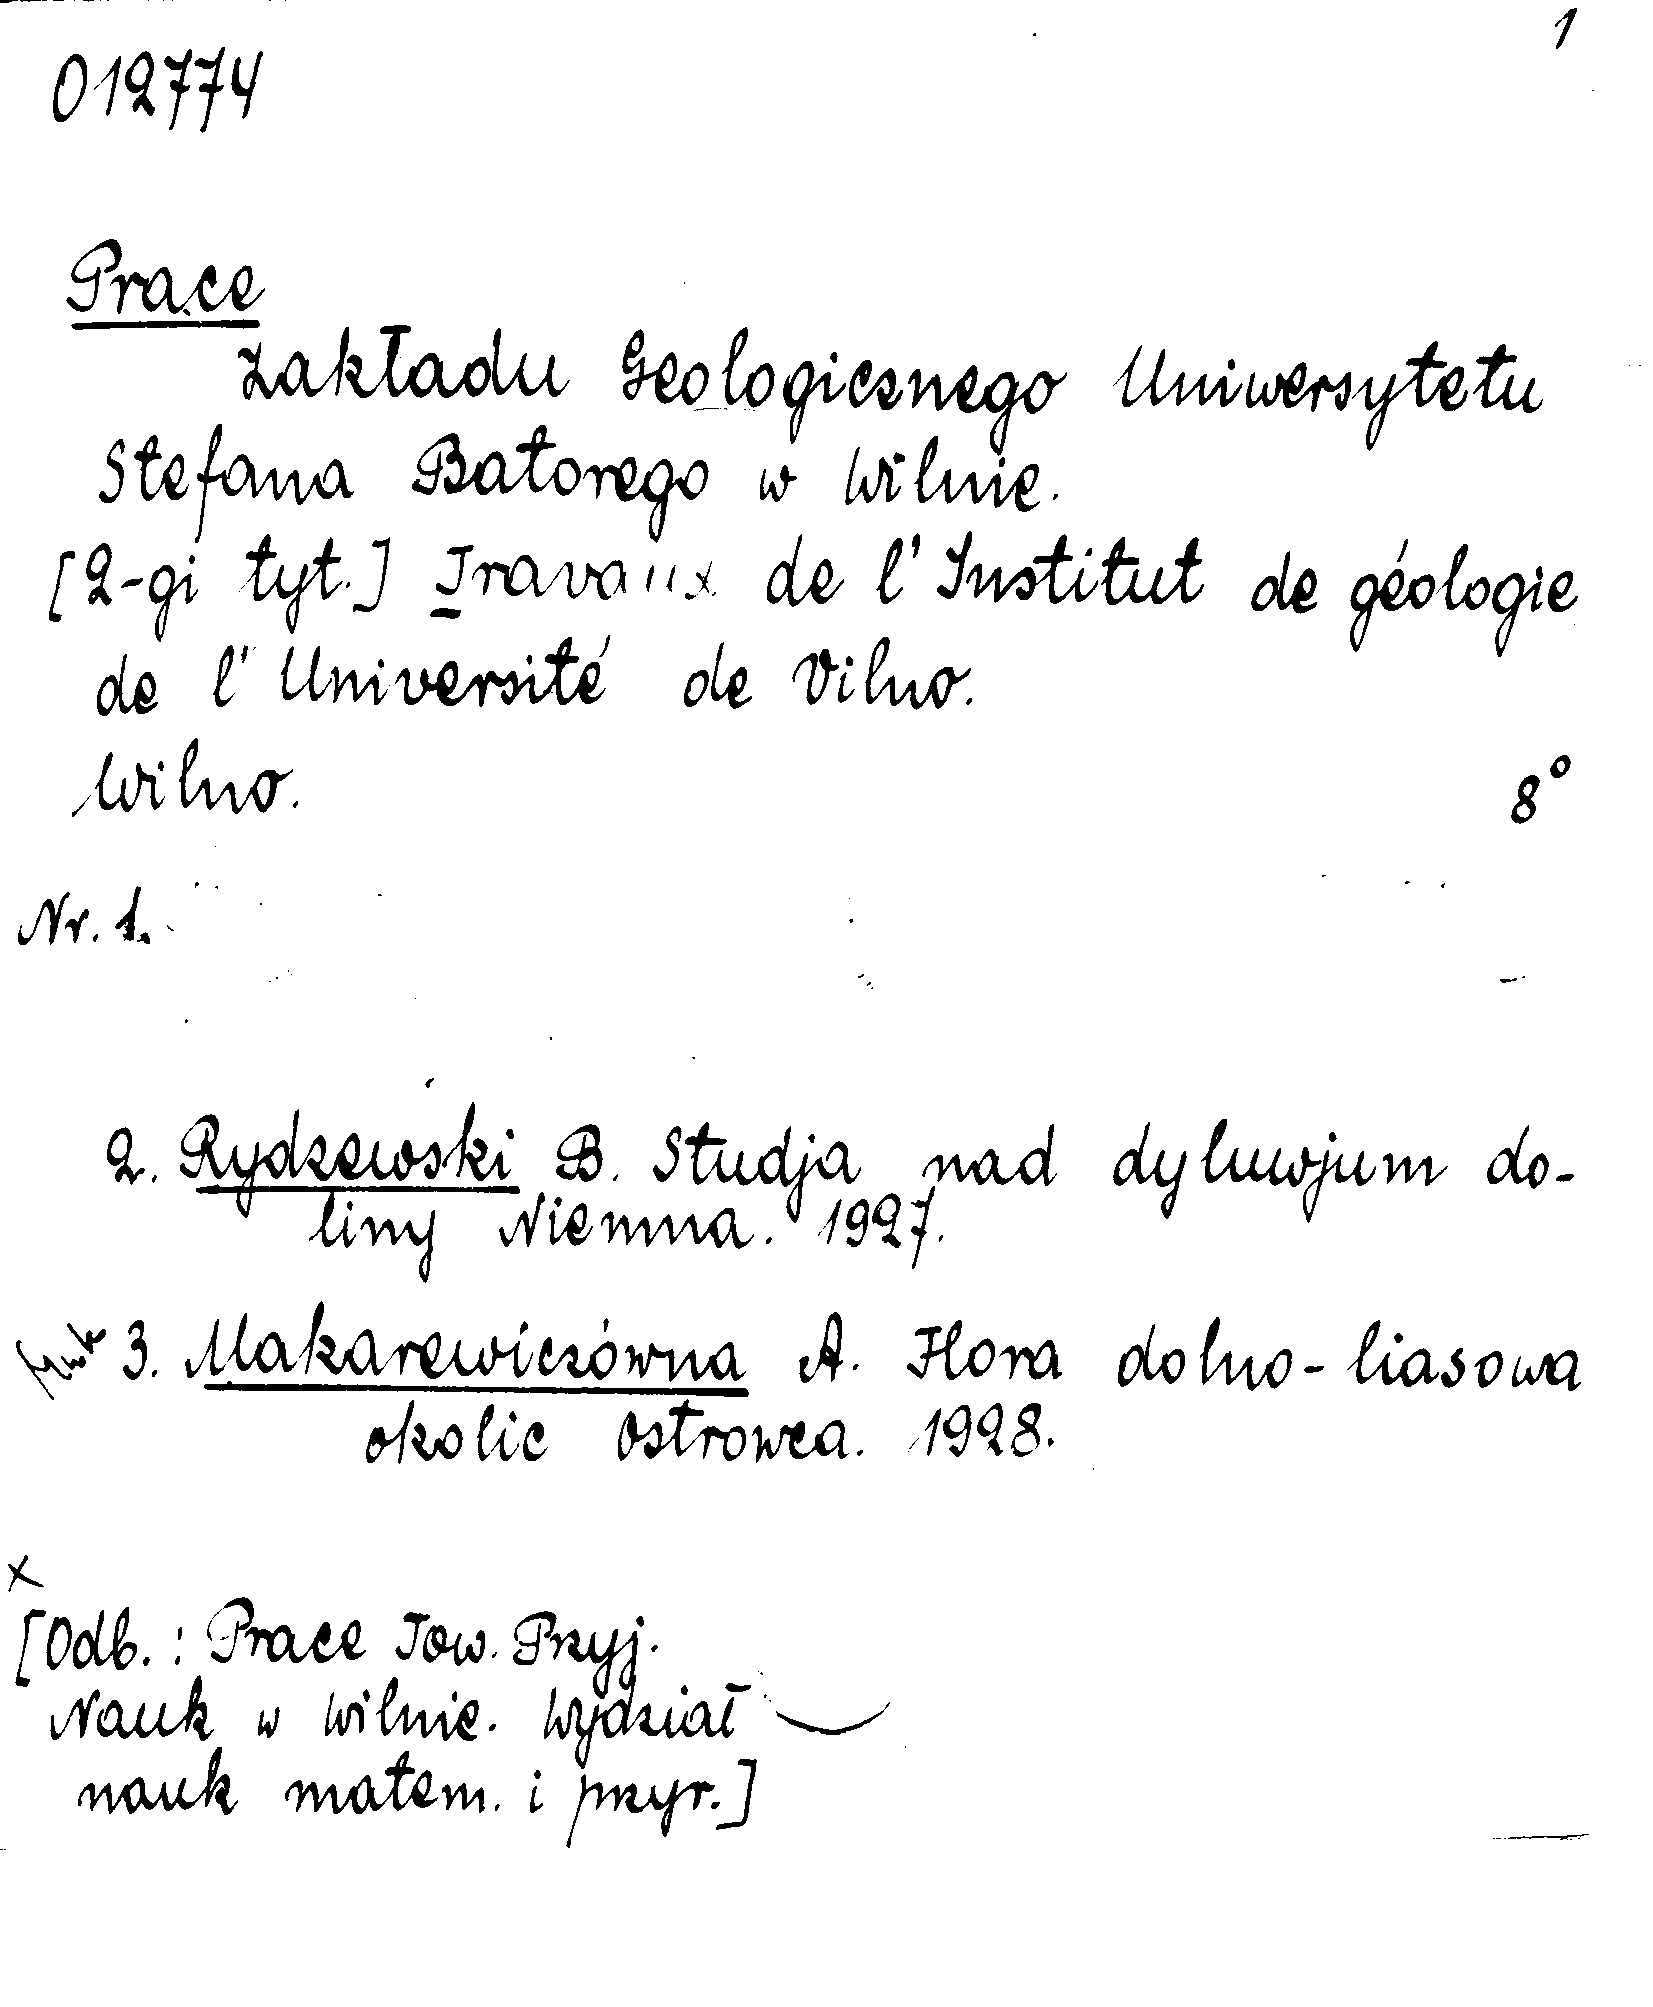 1
012774
Prace
Zakładu Geologicznego Uniwersytetu
Stefana Batorego w Wilnie.
[2-gi tyt.] Travaux de l'Institut de géologie
de l'Université de Vilno.
Wilno. 8°
Nr. 1.
2. Rydzewski B. Studja nad dyluwjum do-
liny Niemna. 1927.
3. Makarewiczówna A. Flora dolno-liasowa
okolic Ostrowca. 1928.
x
[Odb.: Prace Tow. Przyj.
Nauk w Wilnie. Wydział
nauk matem. i przyr.]